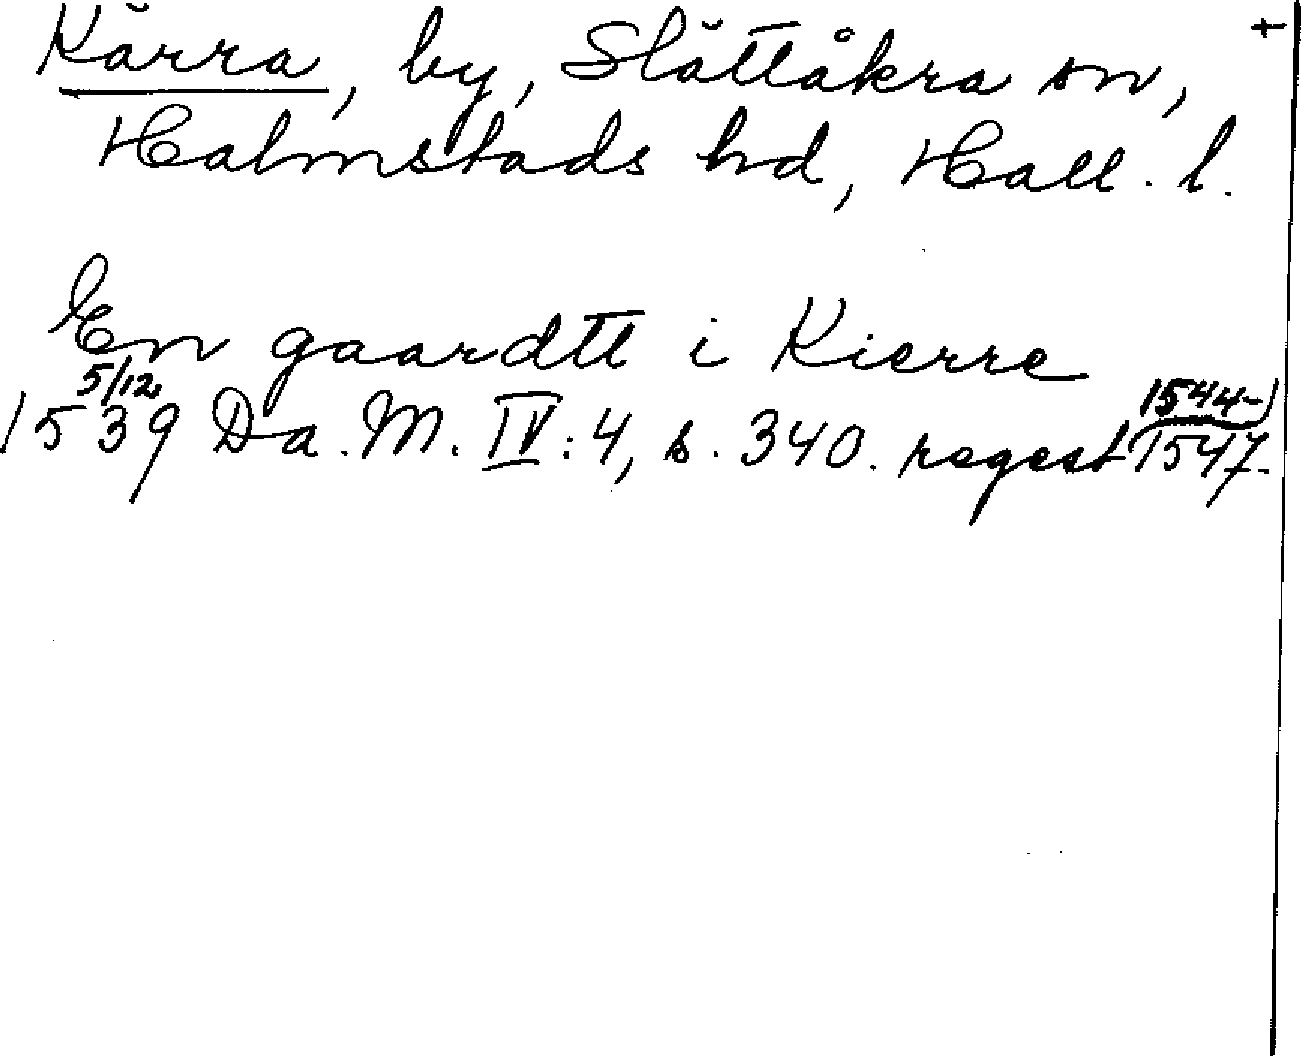 Kärra, by, Slättåkra sn, +
Halmstads hd, Hall. l.
En gaardtt i Kierre
5/12 1539 Da. M. IV:4, s. 340. regest 1544-1547.